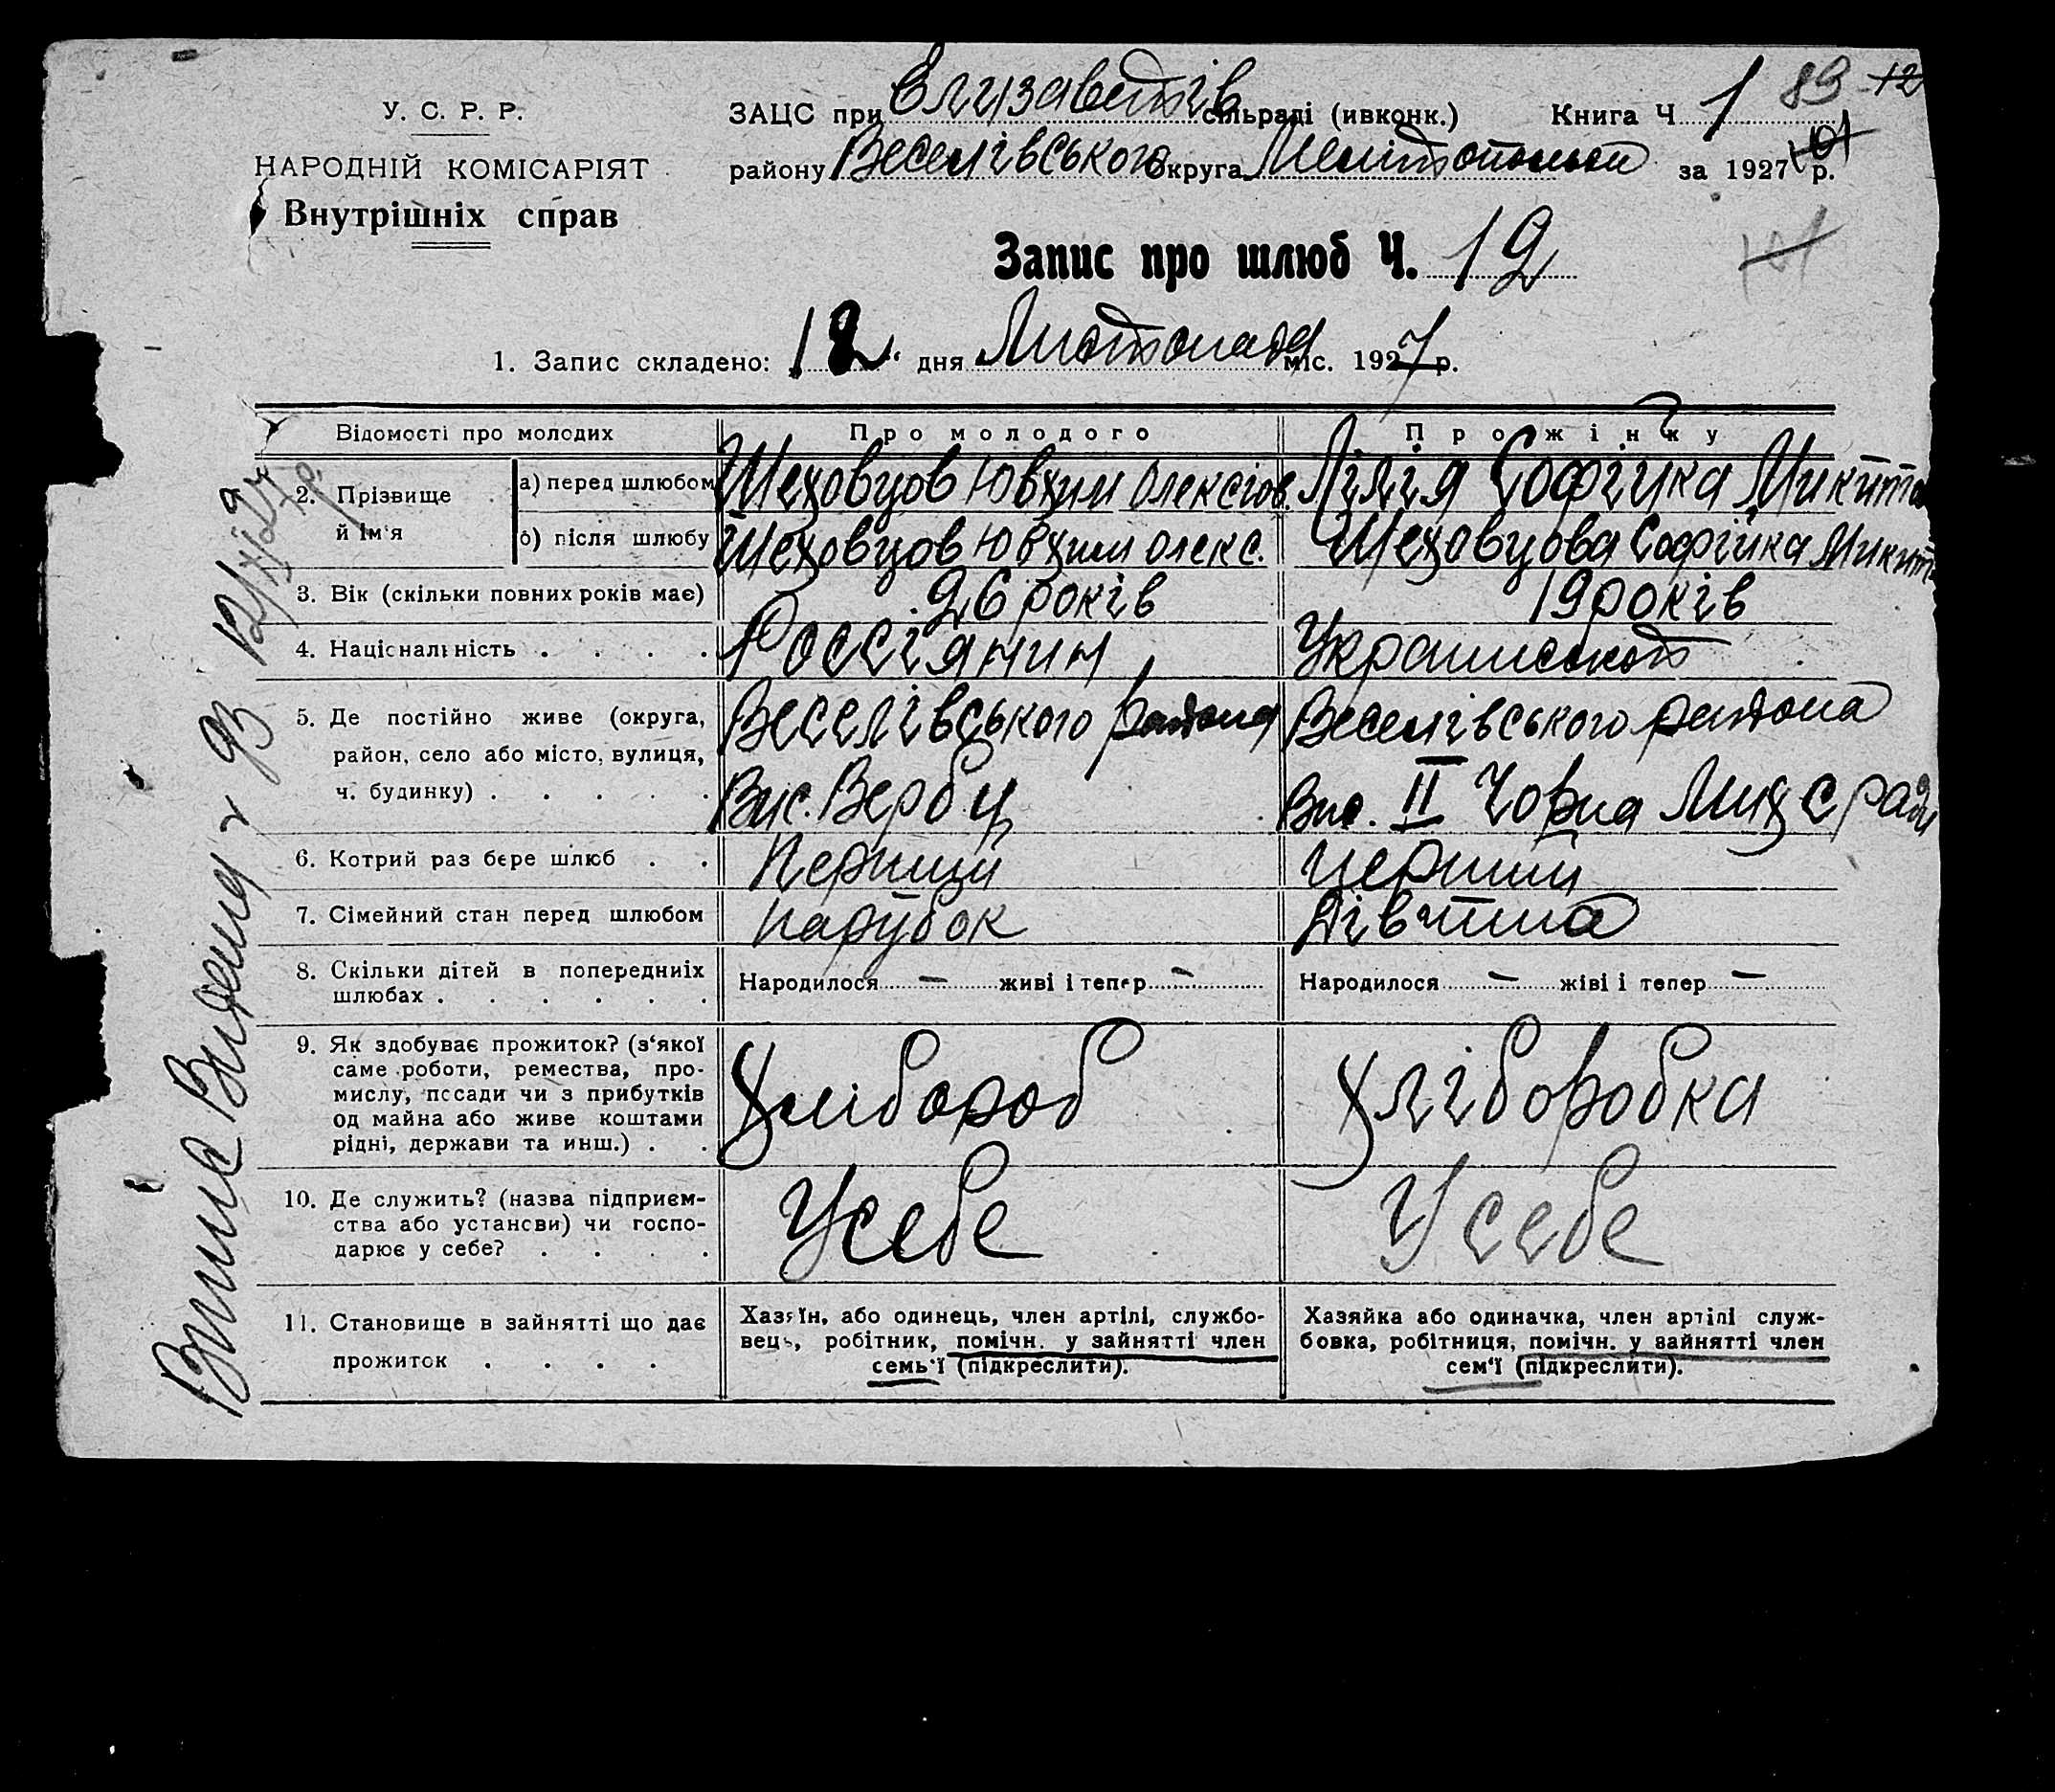 89 12
У. С. Р. Р.
ЗАЦС при Єлизаветів сільраді (ивконк.) Книга Ч. 1
101
НАРОДНІЙ КОМІСАРІЯТ
району Веселівського Округа за 1927 р.
Внутрішніх справ
101
Запис про шлюб Ч. 12
1. Запис складено: 12 " дня Листопада міс. 1927 р.
Відомості про молодих Про молодого Про жінку
2. Прізвище й ім'я
а) перед шлюбом Шеховцов Ювхим Олексіов. Лілія Софійка Микит
б) після шлюбу Шеховцов Ювхим Олекс. Шеховцова Софійка Микит
3. Вік (скільки повних років має) 26 років 19 років
4. Національність . . . . Россіянин
5. Де постійно живе (округа, Веселівського района Веселівського района
район, село або місто, вулиця,
ч. будинку) . . . . . Вис. Верби Вис. II Чорна Мих с ради
6. Котрий раз бере шлюб . . Перший перший
7. Сімейний стан перед шлюбом парубок Дівчина
8. Скільки дітей в попередниіх
шлюбах . . . . . . Народилося — живі і тепер — Народилося — жіві і тепер —
9. Як здобуває прожиток? (з'якої
саме роботи, ремества, про-
мислу, посади чи з прибутків
од майна або живе коштами
рідні, держави та инш.) . . Хлібороб Хліборобка
10. Де служить? (назва підприєм-
ства або устансви) чи госпо-
дарює у себе? . . . . Усебе Усебе
11. Становище в зайнятті що дає
прожиток . . . .
Хазяїн, або одинець, член артілі, службо-
вець, робітник, помічн. у зайнятті член
семь'ї (підкреслити).
Хазяйка або одиначка, член артілі служ-
бовка, робітниця, помічн. у зайнятті член
сем'ї (підкреслити).